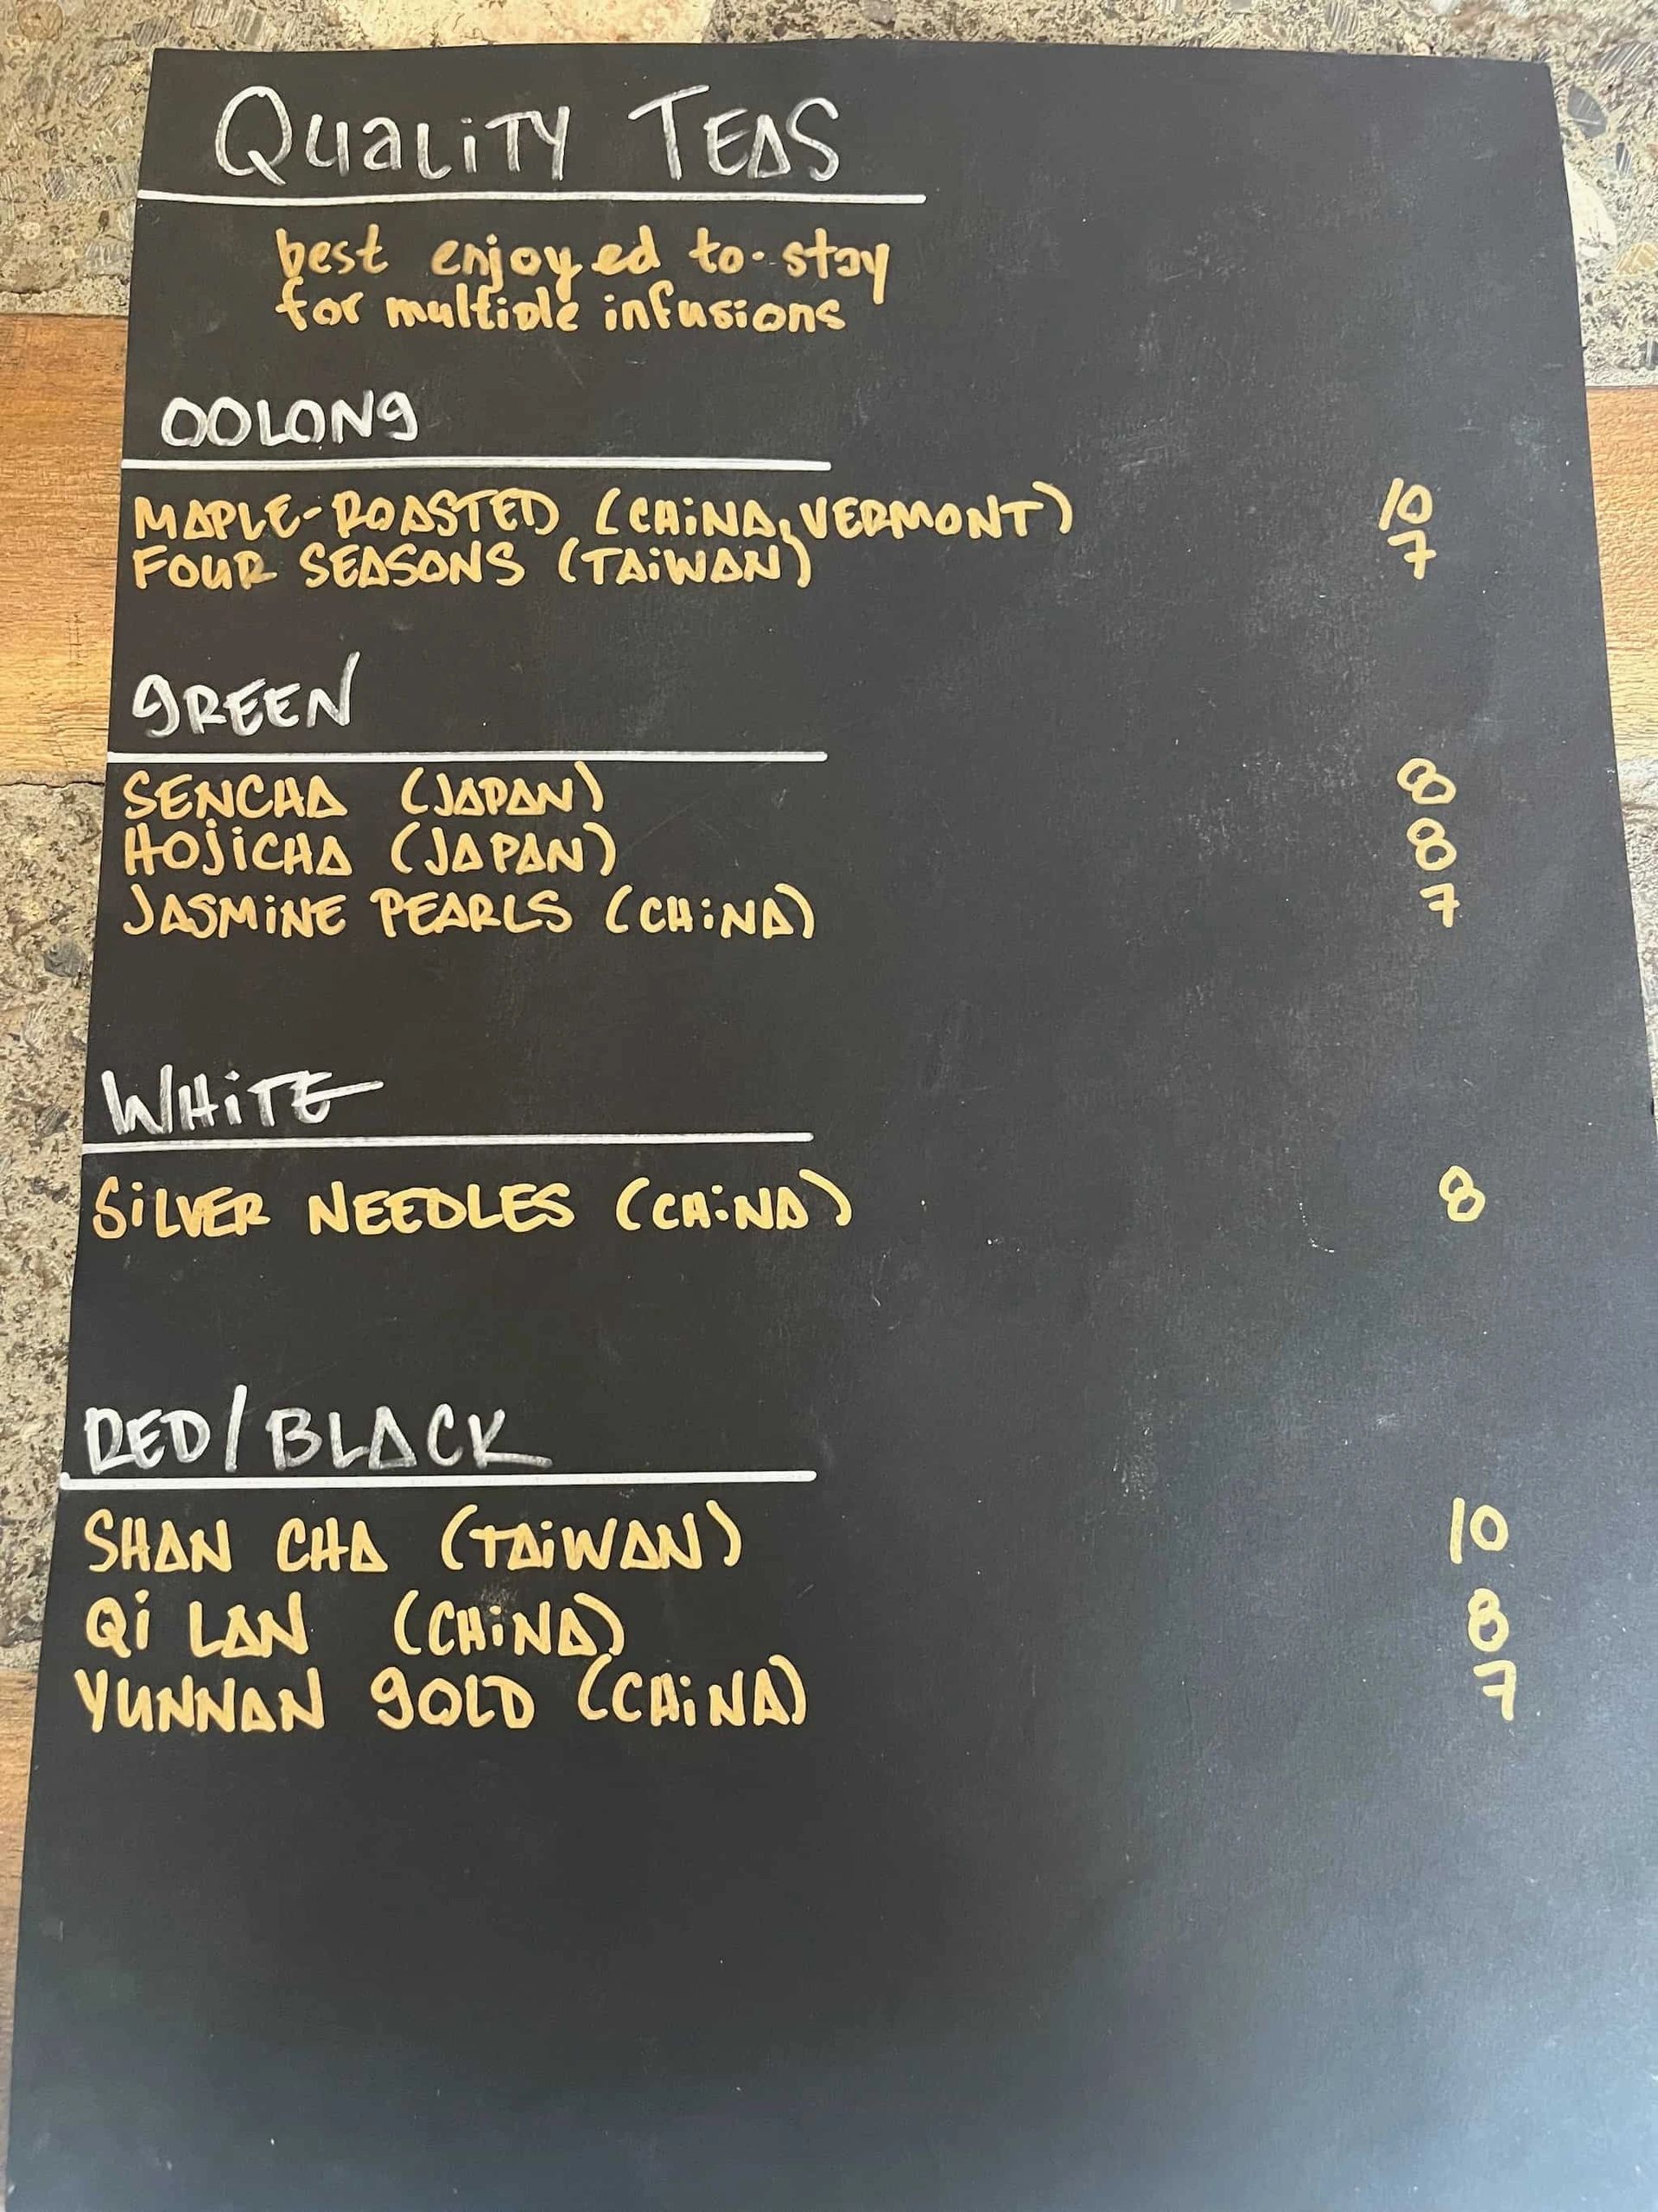 QUaLiTY TEAS
best enjoyed to-stay
for multiple infusions
OOLONg
MAPLE-ROASTED (CHiNA, VERMONT) 10
FOUR SEASONS (TAiWAN) 7
gREEN
SENCHA (JAPAN) 8
HOjiCHA (JAPAN) 8
JASMiNE PEARLS (CHiNA) 7
WHiTE
SiLVER NEEDLES (CHiNA) 8
RED/BLACK
SHAN CHA (TAiWAN) 10
Qi LAN (CHiNA) 8
YUNNAN gOLD (CHiNA) 7